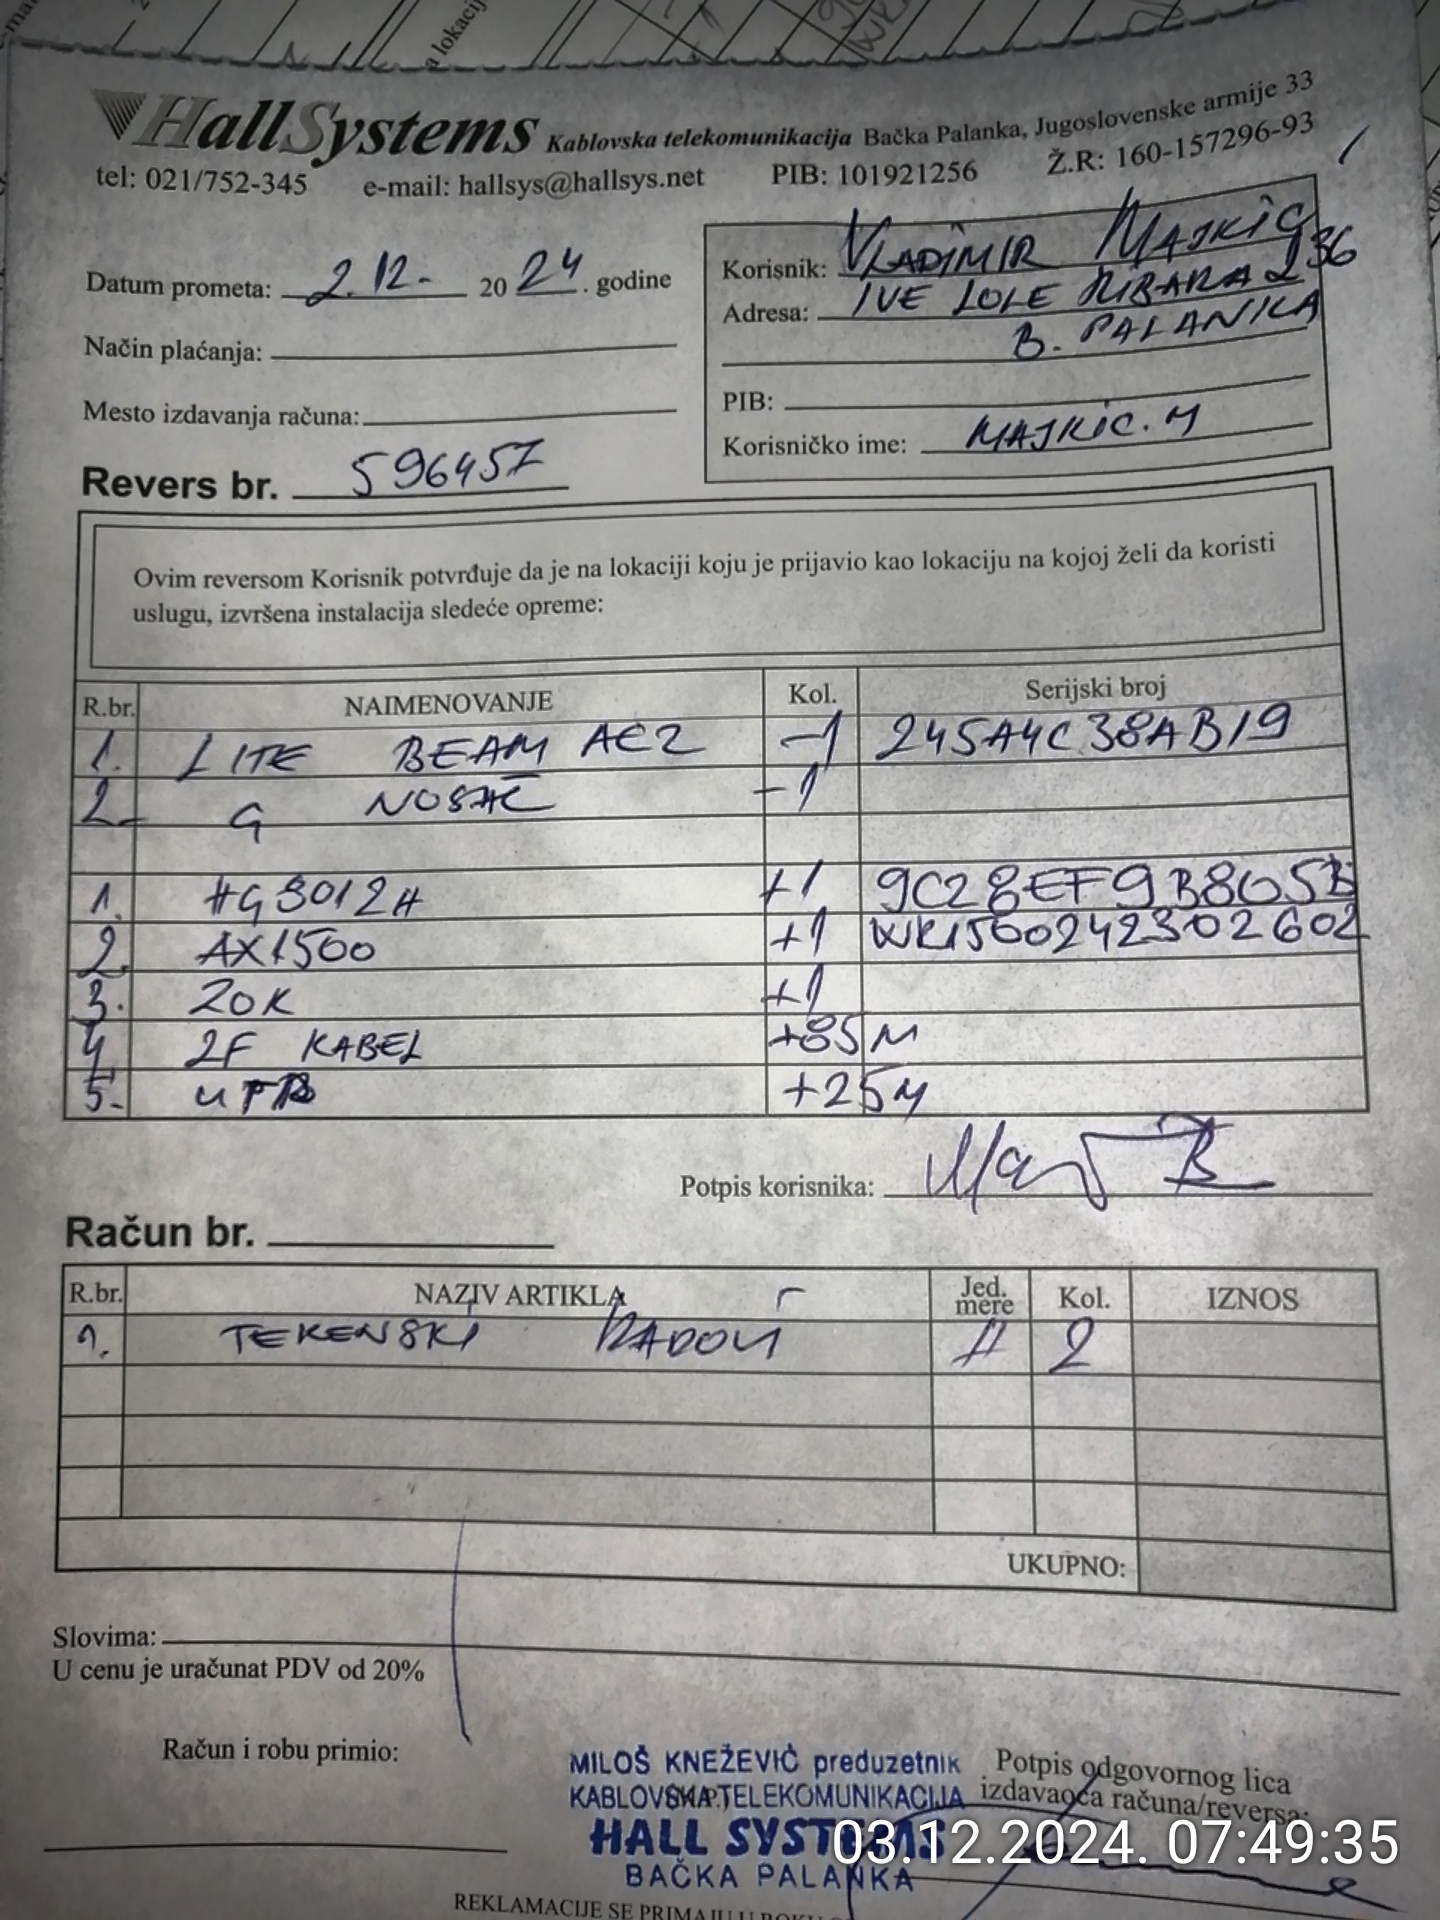 a lokacij
HallSystems Kablovska telekomunikacija Bačka Palanka, Jugoslovenske armije 33
tel: 021/752-345 e-mail: hallsys@hallsys.net PIB: 101921256 Ž.R: 160-157296-93
Datum prometa: 2.12. 2024. godine
Način plaćanja:
Mesto izdavanja računa:
Revers br. 596457
Korisnik: VLADIMIR MAJKIĆ
Adresa: IVE LOLE RIBARA 236
B. PALANKA
PIB:
Korisničko ime: MAJKIC.M
Ovim reversom Korisnik potvrđuje da je na lokaciji koju je prijavio kao lokaciju na kojoj želi da koristi
uslugu, izvršena instalacija sledeće opreme:
R.br. NAIMENOVANJE Kol. Serijski broj
1. LITE BEAM AC2 -1 245A4C38AB19
2. G NOSAČ -1
1. HG8012H +1 9C28EF9B805B
2. AX1500 +1 WK1500242302602
3. ZOK +1
4 2F KABEL +85M
5. +25M
Potpis korisnika:
Račun br.
R.br. NAZIV ARTIKLA Jed. mere Kol. IZNOS
1. TEKENSKI RADOVI H 2
UKUPNO:
Slovima:
U cenu je uračunat PDV od 20%
Račun i robu primio:
MILOŠ KNEŽEVIĆ preduzetnik
KABLOVSKA TELEKOMUNIKACIJA
HALL SYSTEMS
BAČKA PALANKA
Potpis odgovornog lica
izdavaoca računa/reversa:
03.12.2024. 07:49:35
REKLAMACIJE SE PRIMAJU U ROKU